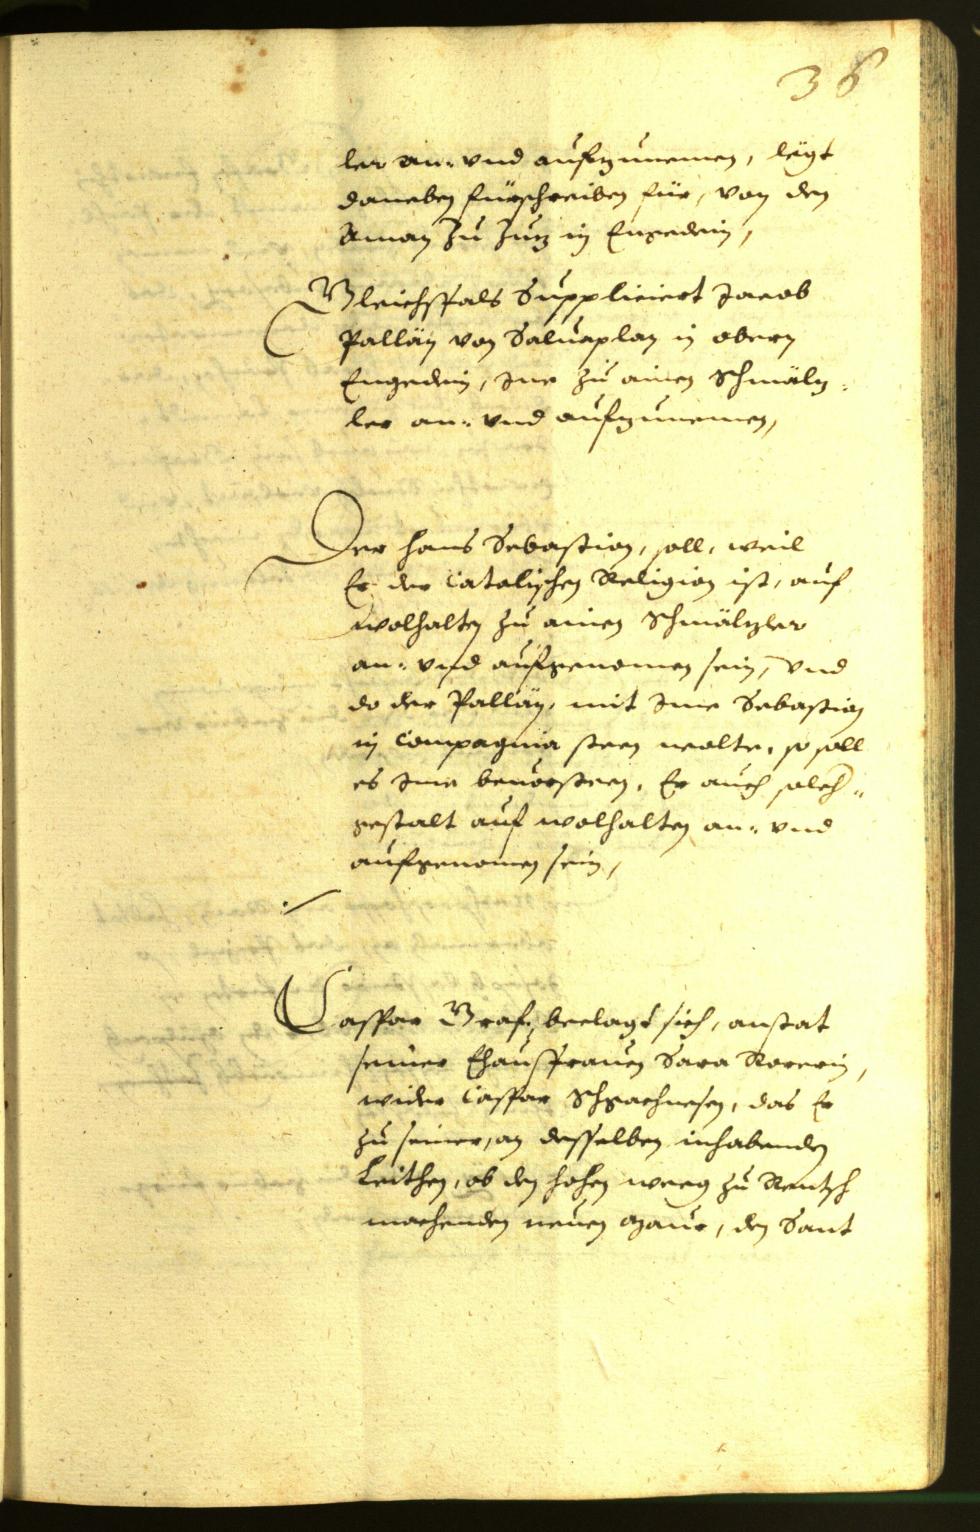 36
ler an- vnd aufzunemen, legt
daneben fürschreiben für, von den
Aman zu Zutz in Engedein,
Gleichsfals Suppliciert Jacob
Palläy von Saluaplan in obern
Engedein, Ine zu ainen Schmälz-
ler an- vnd aufzunemen,
Der Hans Sebastian, soll, weil
Er der Catolischen Religion ist, auf
wolhalten zu ainen Schmälzler
an- vnd aufgenomen sein, vnd
do der Palläy, mit Ime Sebastian
in Compagnia steen wolte, so soll
es Ime beuorsteen, Er auch solch-
gestalt auf wolhalten an- vnd
aufgenomen sein,
Casspar Graf, beclagt sich, anstat
seiner Ehausfrauen Sara
wider Casspar das Er
zu seiner, an desselben inhabenden
Leithen, ob den hohen weeg zu Rentsch
machenden neuen maur, den Sant